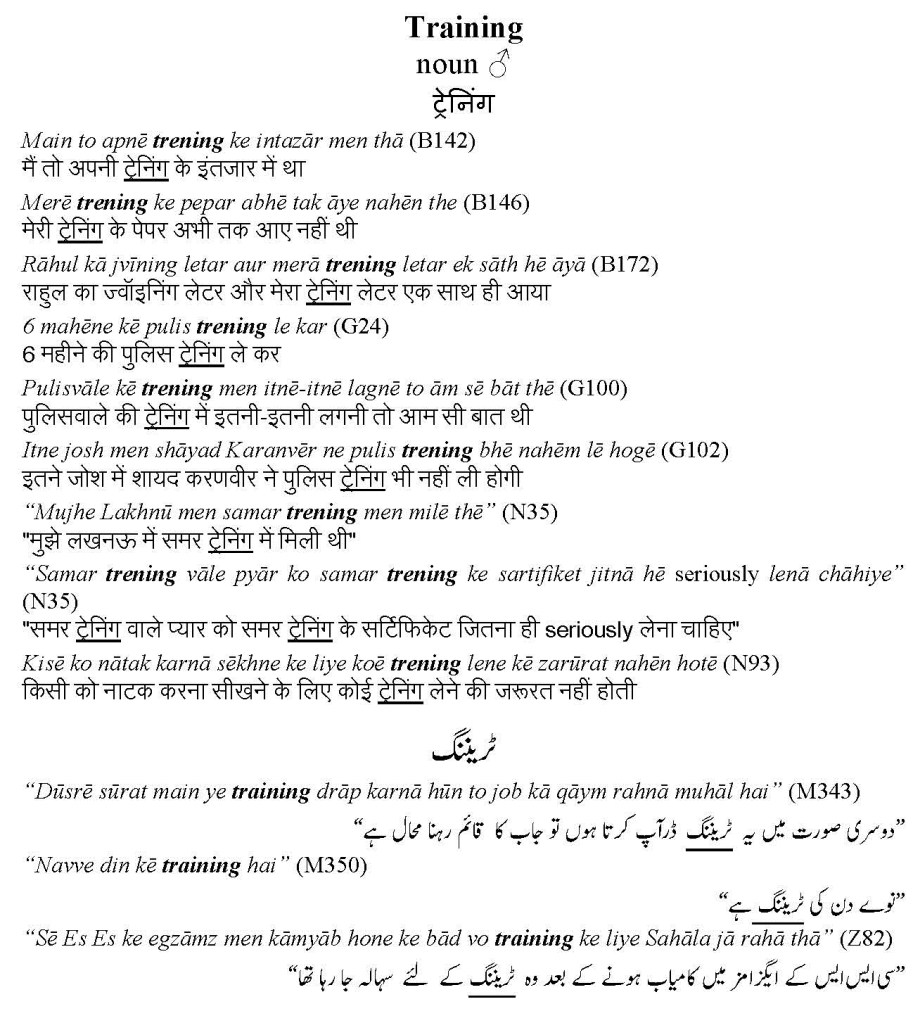 Training
noun ♂
ट्रेनिंग
Main to apnē trening ke intazār men thā (B142)
मैं तो अपनी ट्रेनिंग के इंतजार में था
Merē trening ke pepar abhē tak āye nahēn the (B146)
मेरी ट्रेनिंग के पेपर अभी तक आए नहीं थी
Rāhul kā jvīning letar aur merā trening letar ek sāth hē āyā (B172)
राहुल का ज्वॉइनिंग लेटर और मेरा ट्रेनिंग लेटर एक साथ ही आया
6 mahēne kē pulis trening le kar (G24)
6 महीने की पुलिस ट्रेनिंग ले कर
Pulisvāle kē trening men itnē-itnē lagnē to ām sē bāt thē (G100)
पुलिसवाले की ट्रेनिंग में इतनी-इतनी लगनी तो आम सी बात थी
Itne josh men shāyad Karanvēr ne pulis trening bhē nahēm lē hogē (G102)
इतने जोश में शायद करणवीर ने पुलिस ट्रेनिंग भी नहीं ली होगी
“Mujhe Lakhnū men samar trening men milē thē” (N35)
"मुझे लखनऊ में समर ट्रेनिंग में मिली थी"
“Samar trening vāle pyār ko samar trening ke sartifiket jitnā hē seriously lenā chāhiye”
(N35)
"समर ट्रेनिंग वाले प्यार को समर ट्रेनिंग के सर्टिफिकेट जितना ही seriously लेना चाहिए"
Kisē ko nātak karnā sēkhne ke liye koē trening lene kē zarūrat nahēn hotē (N93)
किसी को नाटक करना सीखने के लिए कोई ट्रेनिंग लेने की जरूरत नहीं होती
ٹریننگ
“Dūsrē sūrat main ye training drāp karnā hūn to job kā qāym rahnā muhāl hai” (M343)
”دوسری صورت میں یہ ٹریننگ ڈرآپ کرتا ہوں تو جاب کا قائم رہنا محال ہے“
“Navve din kē training hai” (M350)
”نوے دن کی ٹریننگ ہے“
“Sē Es Es ke egzāmz men kāmyāb hone ke bād vo training ke liye Sahāla jā rahā thā” (Z82)
”سی ایس ایس کے ایگزامز میں کامیاب ہونے کے بعد وہ ٹریننگ کے لئے سہالہ جا رہا تھا“